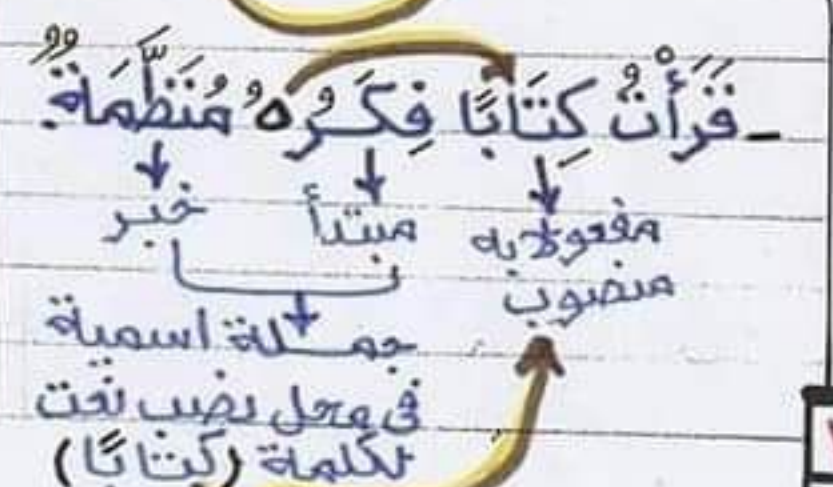 ـ قَرَأْتُ كِتَابًا فِكَرُهُ مُنَظَّمَةٌ.
مفعولا به مبتدأ خبر
منصوب
جملة اسمية
في محل نصب نعت
لكلمة (كتابًا)